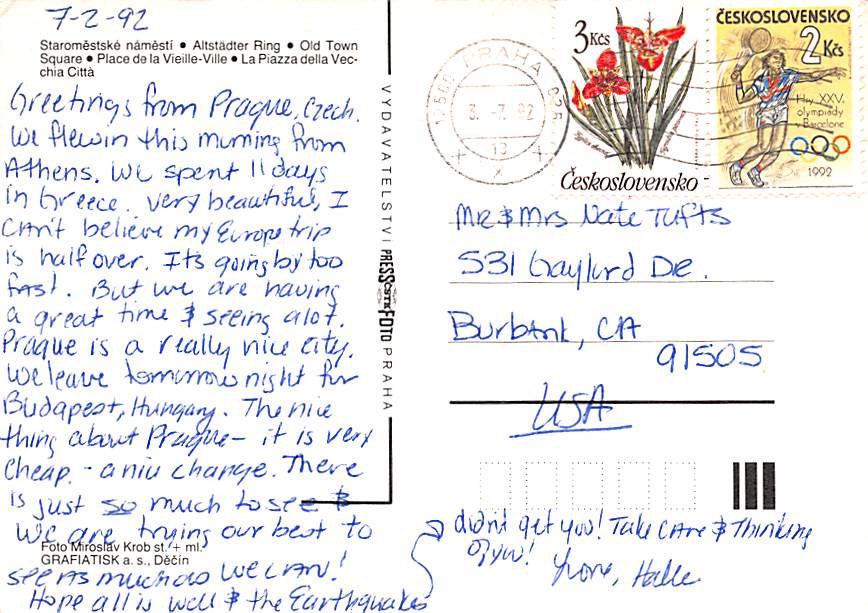 7-2-92
Staroměstské náměstí • Altstädter Ring • Old Town
Square • Place de la Vieille-Ville • La Piazza della Vec-
chia Città
Greetings from Prague, Czech.
We flew in this morning from
Athens. We spent 11 days
in Greece. Very beautiful, I
can't believe my Europe trip
is half over. Its going by too
fast. But we are having
a great time & seeing alot.
Prague is a really nice city.
We leave tomorrow night for
Budapest, Hungary. The nice
thing about Prague - it is very
cheap. - a nice change. There
is just so much to see &
we are trying our best to
see as much as we can!
Hope all is well & the Earthquakes
didn't get you! Take care & Thinking
of you!
Love, Halle
Foto Miroslav Krob st. + ml.
GRAFIATISK a. s., Děčín
VYDAVATELSTVÍ PRESSFOTO PRAHA
PRAHA
3.-7.92
3 Kčs
Československo
ČESKOSLOVENSKO
2 Kčs
Hry XXV.
olympiády
v Barceloně
1992
Mr & Mrs Nate Tufts
531 Gaylord Dr.
Burbank, CA
91505
USA